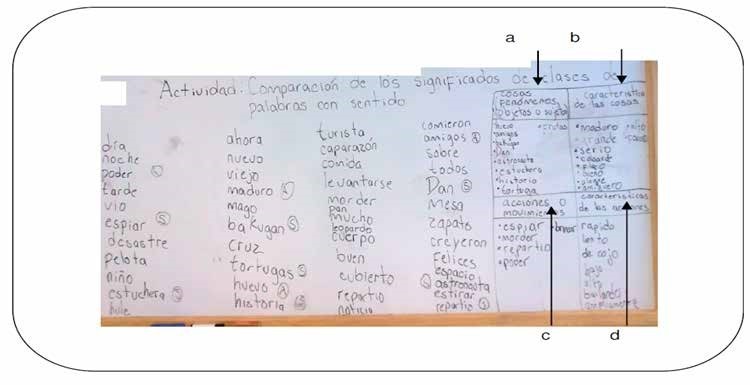 a
b
Actividad: Comparación de los significados de clases de
palabras con sentido
día
noche
poder
tarde
vio
espiar S
desastre
pelota
niño
estuchera
ahora
nuevo
viejo
maduro
mago
bakugan S
cruz
tortugas S
huevo A
historia
turista
caparazón
comida
levantarse
morder
pan
mucho
leopardo
cuerpo
buen
cubierto
repartio
noticia
comieron
amigos
sobre
todos
Dan S
mesa
zapato
creyeron
felices
espacio
astronauta
estirar
repartio
cosas
fenómenos
objetos o sujetos
huevo
•amigos
•astronauta
•estuchera
•historia
•tortuga
•frutas
característica
de las cosas
•maduro
•grande
•serio
•cobarde
acciones o
movimientos
•espiar
•morder
•repartio
•poder
características
de las acciones
rapido
lento
de cojo
bajo
alto
bailando
c
d